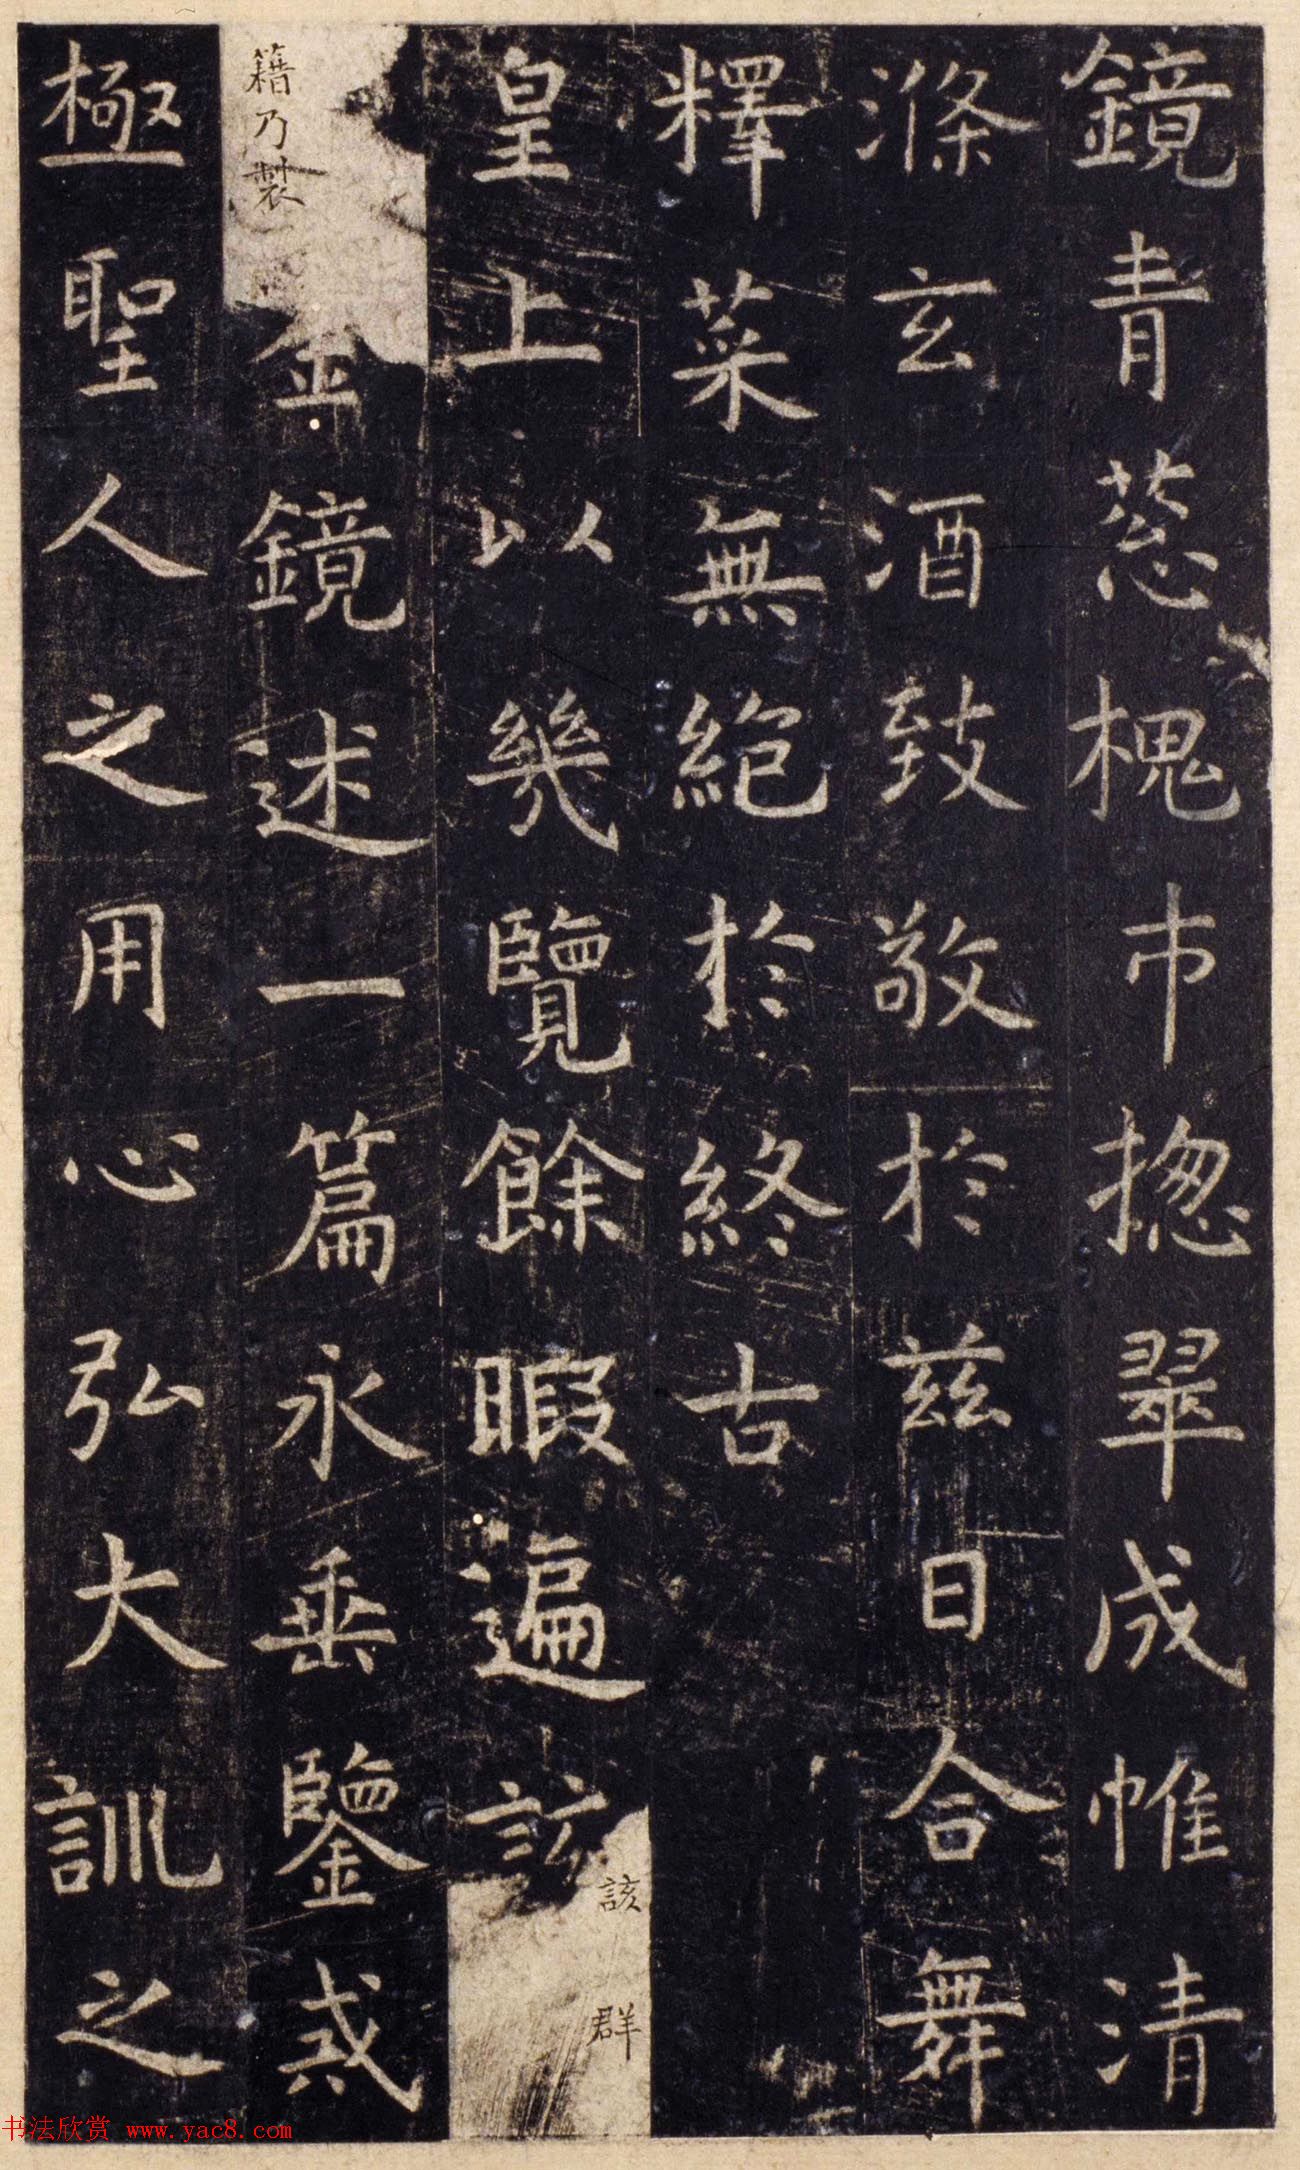 鏡青蔥槐市揔翠成帷清
滌玄酒致敬於兹日合舞
釋菜無絕於終古
皇上以幾覽餘暇遍該
該群
籍乃製
金鏡述一篇永垂鑒戒
極聖人之用心弘大訓之
书法欣赏 www.yac8.com